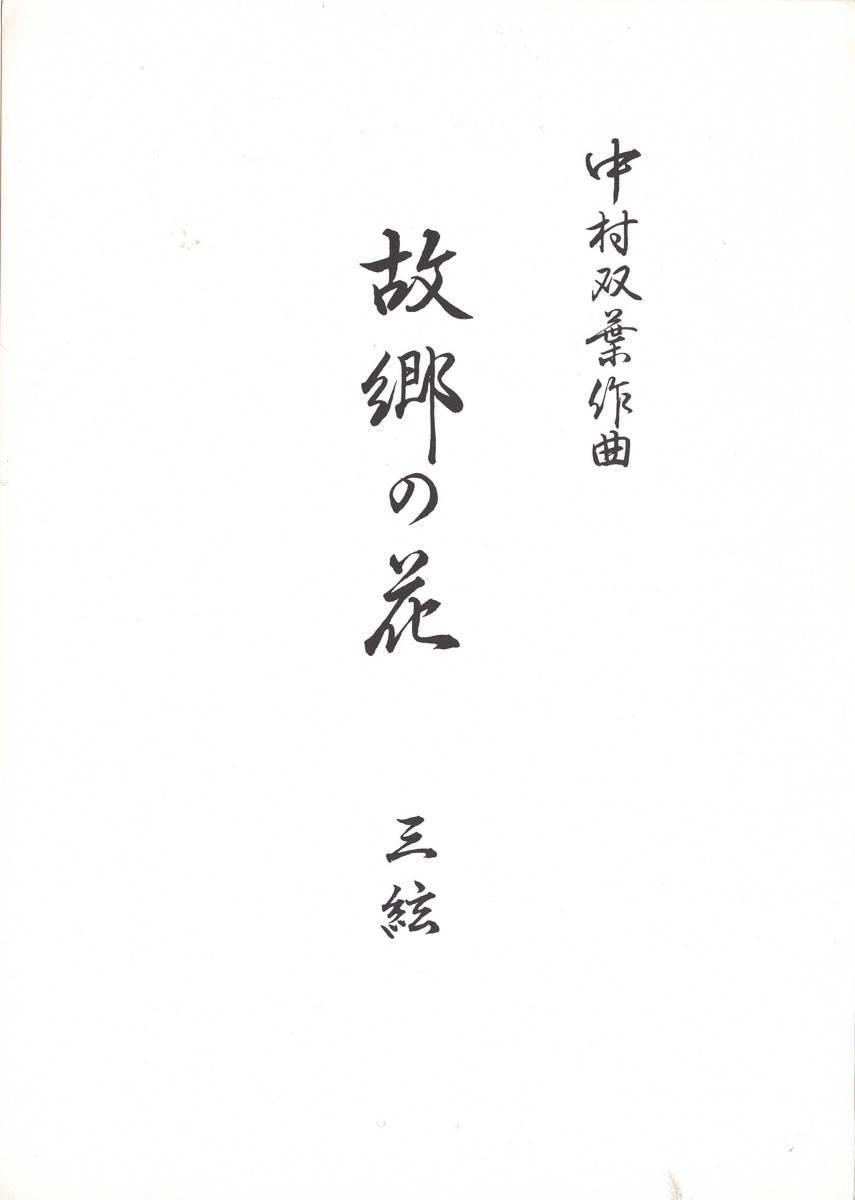 中村双葉作曲
故郷の花 三絃